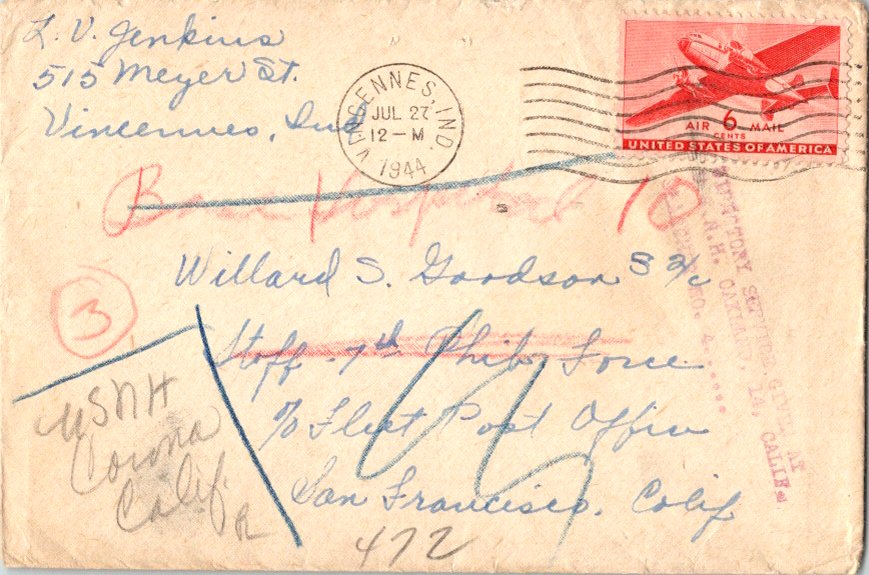 L. V. Jenkins
515 Meyer St.
Vincennes, Ind
VINCENNES, IND.
JUL 27
12 - M
1944
AIR 6 MAIL
CENTS
UNITED STATES OF AMERICA
Base Hospital 10
DIRECTORY SERVICE GIVEN AT
U.S.N.H. OAKLAND, 14, CALIF.
NO. 4.....
Willard S. Goodson S 2/c
3
Staff - 7th Phib. Force
c/o Fleet Post Office
San Francisco. Calif
USNH
Corona
Calif.
R
472